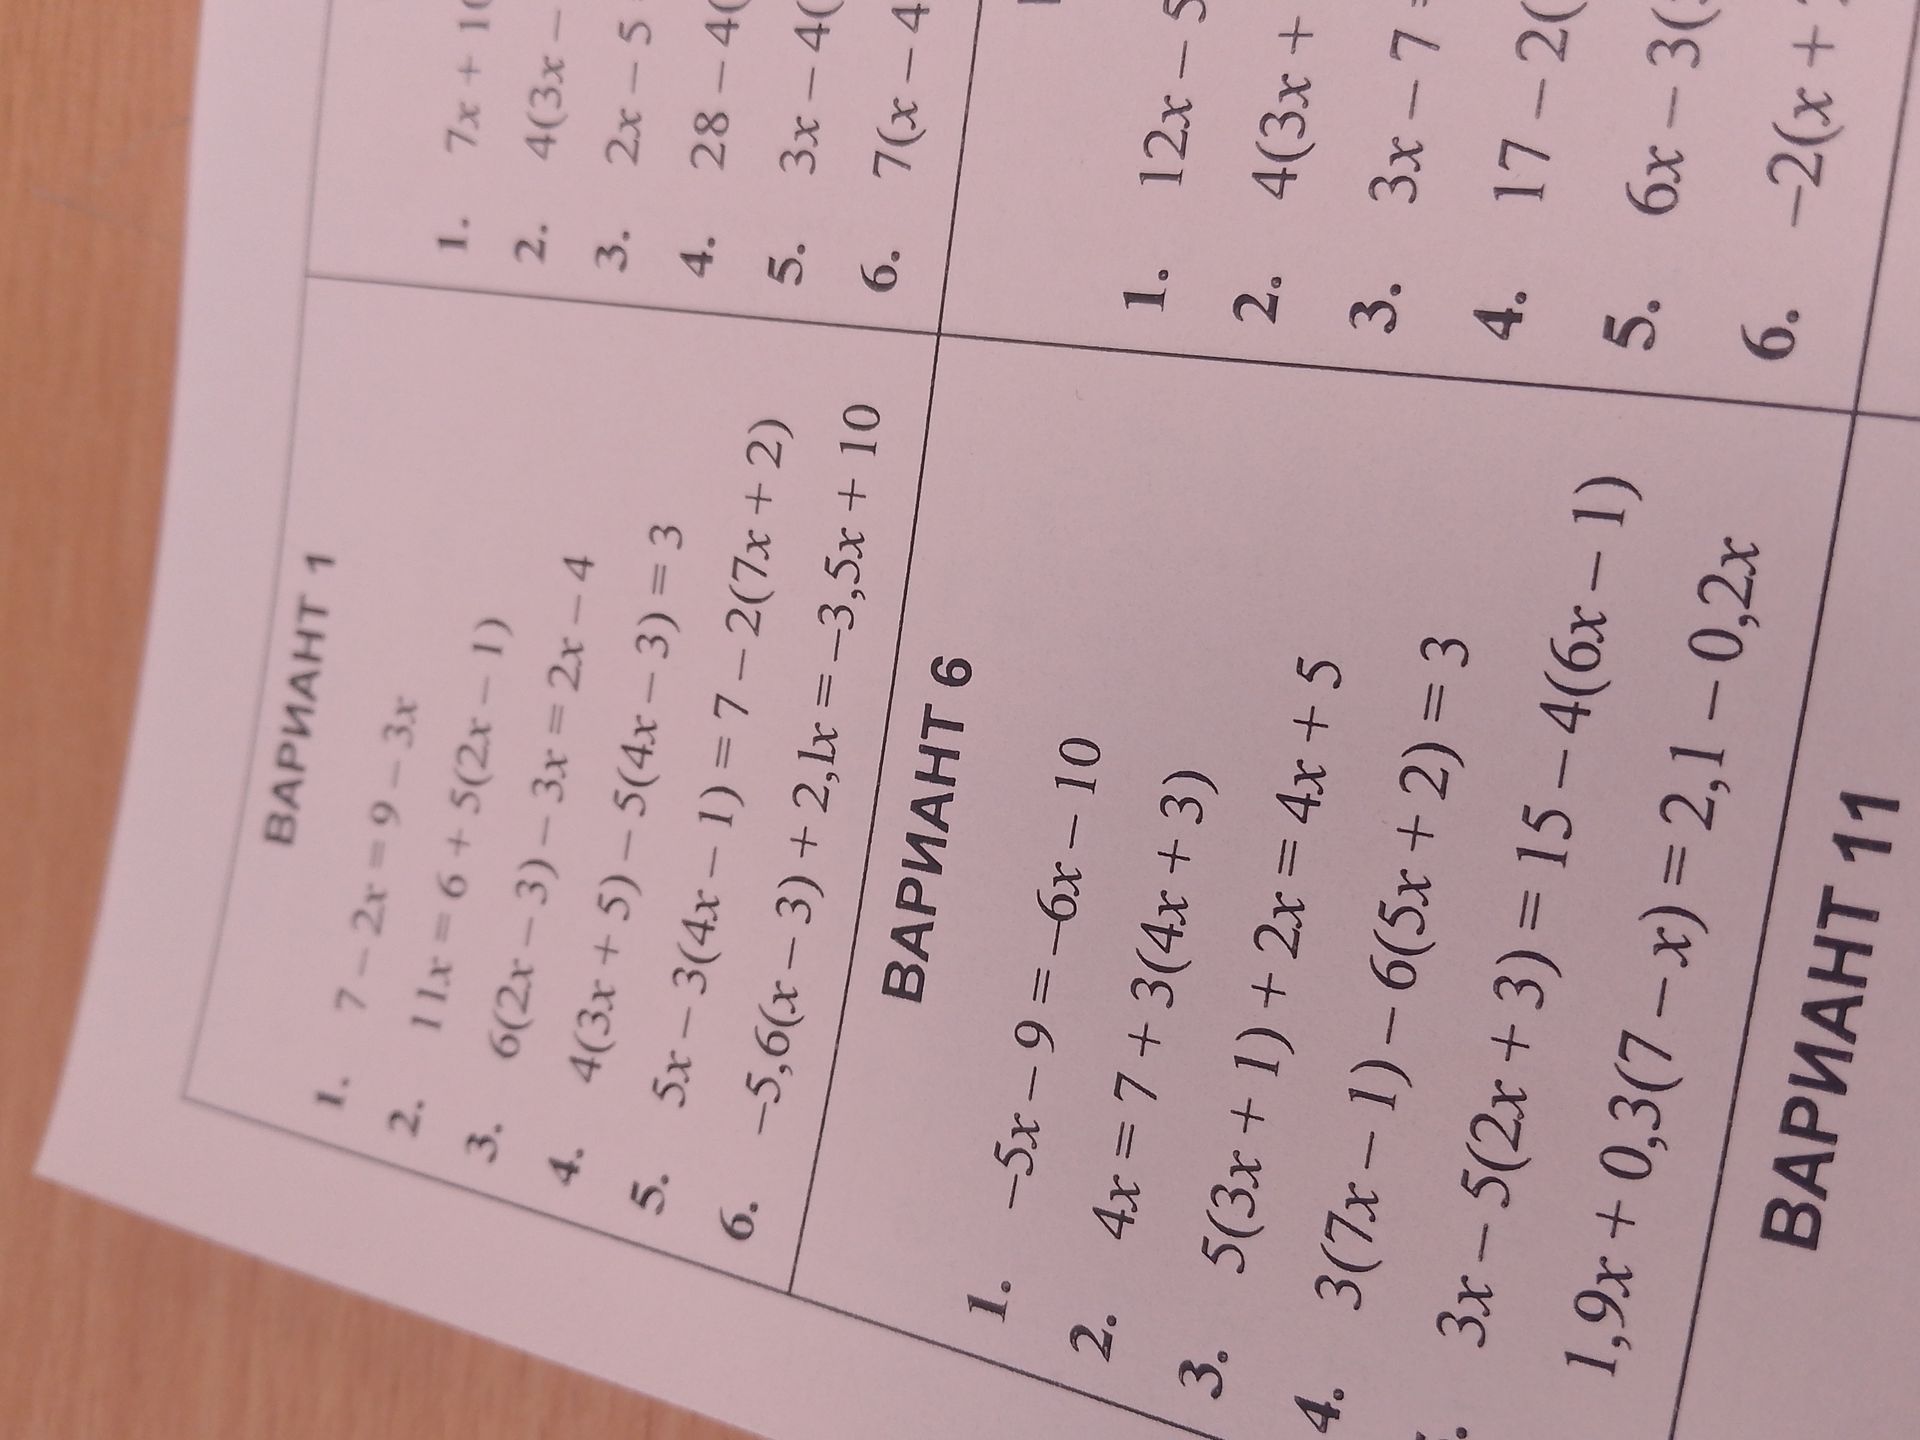 ВАРИАНТ 1
1. 7 – 2x = 9 – 3x
2. 11x = 6 + 5(2x – 1)
3. 6(2x – 3) – 3x = 2x – 4
4. 4(3x + 5) – 5(4x – 3) = 3
5. 5x – 3(4x – 1) = 7 – 2(7x + 2)
6. –5,6(x – 3) + 2,1x = –3,5x + 10
1. 7x + 1
2. 4(3x –
3. 2x – 5
4. 28 – 4(
5. 3x – 4(
6. 7(x – 4
ВАРИАНТ 6
1. –5x – 9 = –6x – 10
2. 4x = 7 + 3(4x + 3)
3. 5(3x + 1) + 2x = 4x + 5
4. 3(7x – 1) – 6(5x + 2) = 3
3x – 5(2x + 3) = 15 – 4(6x – 1)
1,9x + 0,3(7 – x) = 2,1 – 0,2x
1. 12x – 5
2. 4(3x +
3. 3x – 7 =
4. 17 – 2(
5. 6x – 3(
6. –2(x +
ВАРИАНТ 11